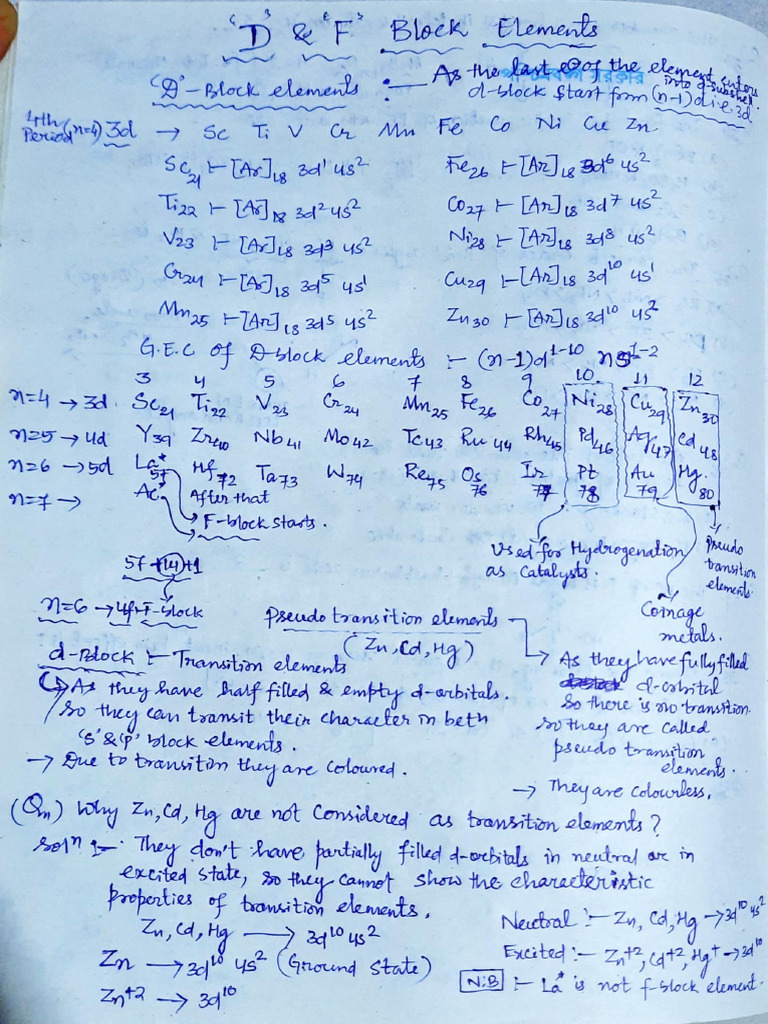 'D' & 'F' Block Elements
'D'-Block elements :— As the last e⊖ of the element enters into d-subshell
d-block start form (n-1)d i.e 3d
4th Period (n=4) 3d → Sc Ti V Cr Mn Fe Co Ni Cu Zn
Sc21 :- [Ar]18 3d¹ 4s² Fe26 :- [Ar]18 3d⁶ 4s²
Ti22 :- [Ar]18 3d² 4s² Co27 :- [Ar]18 3d⁷ 4s²
V23 :- [Ar]18 3d³ 4s² Ni28 :- [Ar]18 3d⁸ 4s²
Cr24 :- [Ar]18 3d⁵ 4s¹ Cu29 :- [Ar]18 3d¹⁰ 4s¹
Mn25 :- [Ar]18 3d⁵ 4s² Zn30 :- [Ar]18 3d¹⁰ 4s²
G.E.C of D-block elements :- (n-1)d¹⁻¹⁰ ns¹⁻²
3 4 5 6 7 8 9 10 11 12
n=4 → 3d. Sc21 Ti22 V23 Cr24 Mn25 Fe26 Co27 Ni28 Cu29 Zn30
n=5 → 4d Y39 Zr40 Nb41 Mo42 Tc43 Ru44 Rh45 Pd46 Ag47 Cd48
n=6 → 5d La*57 Hf72 Ta73 W74 Re75 Os76 Ir77 Pt78 Au79 Hg80
n=7 → Ac After that
F-block starts.
57+14+1
Used for Hydrogenation
as Catalysts.
Pseudo
transition
elements.
Coinage
metals.
n=6 → 4f F-block
Pseudo transition elements
(Zn, Cd, Hg)
→ As they have fully filled
d-orbital
So there is no transition.
so they are called
pseudo transition
elements.
→ They are colourless.
d-Block :- Transition elements
→ As they have half filled & empty d-orbitals.
So they can transit their character in both
's' & 'p' block elements.
→ Due to transition they are coloured.
(Qn) Why Zn, Cd, Hg are not Considered as transition elements?
Solⁿ :- They don't have partially filled d-orbitals in neutral or in
excited state, so they cannot show the characteristic
properties of transition elements.
Zn, Cd, Hg → 3d¹⁰ 4s²
Zn → 3d¹⁰ 4s² (Ground State)
Zn⁺² → 3d¹⁰
Neutral :- Zn, Cd, Hg → 3d¹⁰ 4s²
Excited :- Zn⁺², Cd⁺², Hg⁺ → 3d¹⁰
N:B :- La* is not f-block element.